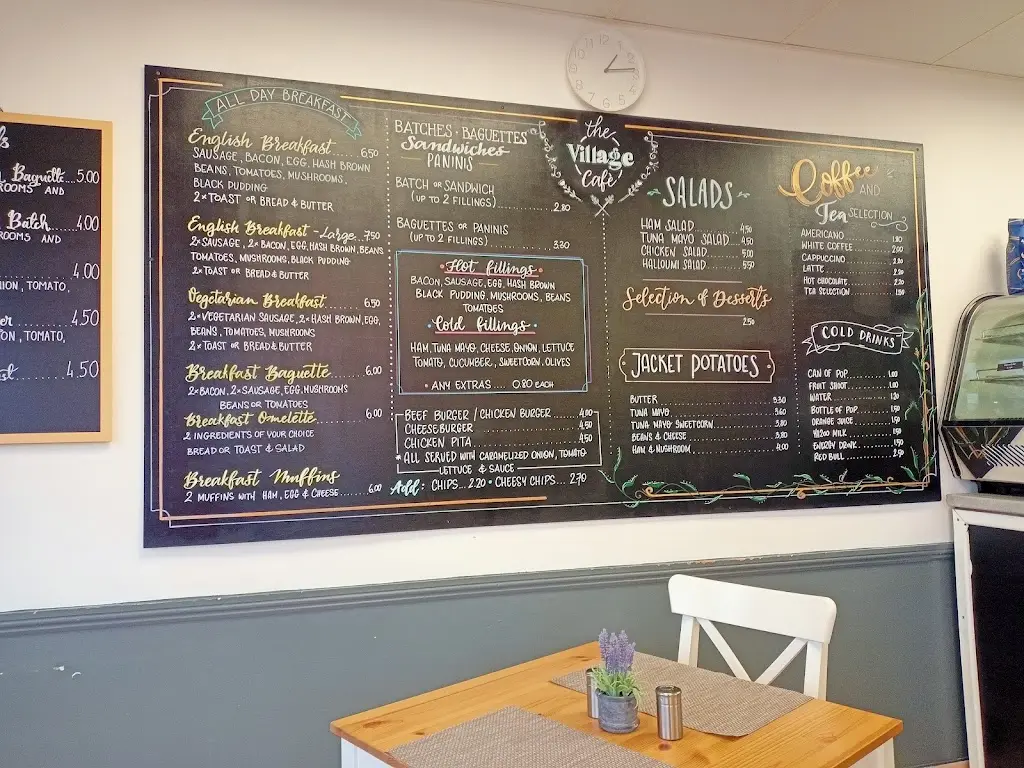 Baguette...5.00
ROOMS AND
Batch...4.00
ROOMS AND
4.00
ION, TOMATO,
4.50
ON, TOMATO,
4.50
ALL DAY BREAKFAST
English Breakfast...6.50
SAUSAGE, BACON, EGG, HASH BROWN
BEANS, TOMATOES, MUSHROOMS,
BLACK PUDDING
2x TOAST OR BREAD & BUTTER
English Breakfast -Large...7.50
2x SAUSAGE, 2x BACON, EGG, HASH BROWN, BEANS
TOMATOES, MUSHROOMS, BLACK PUDDING
2x TOAST OR BREAD & BUTTER
Vegetarian Breakfast...6.50
2x VEGETARIAN SAUSAGE, 2x HASH BROWN, EGG,
BEANS, TOMATOES, MUSHROOMS
2x TOAST OR BREAD & BUTTER
Breakfast Baguette...6.00
2x BACON, 2x SAUSAGE, EGG, MUSHROOMS
BEANS OR TOMATOES
Breakfast Omelette...6.00
2 INGREDIENTS OF YOUR CHOICE
BREAD OR TOAST & SALAD
Breakfast Muffins
2 MUFFINS WITH HAM, EGG & CHEESE...6.00
BATCHES · BAGUETTES
Sandwiches
PANINIS
BATCH OR SANDWICH
(UP TO 2 FILLINGS)...2.80
BAGUETTES OR PANINIS
(UP TO 2 FILLINGS)...3.30
Hot fillings
BACON, SAUSAGE, EGG, HASH BROWN
BLACK PUDDING, MUSHROOMS, BEANS
TOMATOES
Cold fillings
HAM, TUNA MAYO, CHEESE, ONION, LETTUCE
TOMATO, CUCUMBER, SWEETCORN, OLIVES
• ANY EXTRAS...0.80 EACH
BEEF BURGER / CHICKEN BURGER...4.00
CHEESEBURGER...4.50
CHICKEN PITA...4.50
* ALL SERVED WITH CARAMELIZED ONION, TOMATO
LETTUCE & SAUCE
Add: CHIPS...2.20 • CHEESY CHIPS...2.70
the
Village
Café
SALADS
HAM SALAD...4.50
TUNA MAYO SALAD...4.50
CHICKEN SALAD...5.00
HALLOUMI SALAD...5.50
Selection of Desserts
2.50
JACKET POTATOES
BUTTER...3.30
TUNA MAYO...3.60
TUNA MAYO SWEETCORN...3.80
BEANS & CHEESE...3.80
HAM & MUSHROOM...4.00
Coffee AND
Tea SELECTION
AMERICANO
WHITE COFFEE
CAPPUCCINO
LATTE
HOT CHOCOLATE
TEA SELECTION
COLD DRINKS
CAN OF POP...1.00
FRUIT SHOOT...1.00
WATER
BOTTLE OF POP...1.50
ORANGE JUICE...1.50
MILK...1.50
ENERGY DRINK...1.50
RED BULL